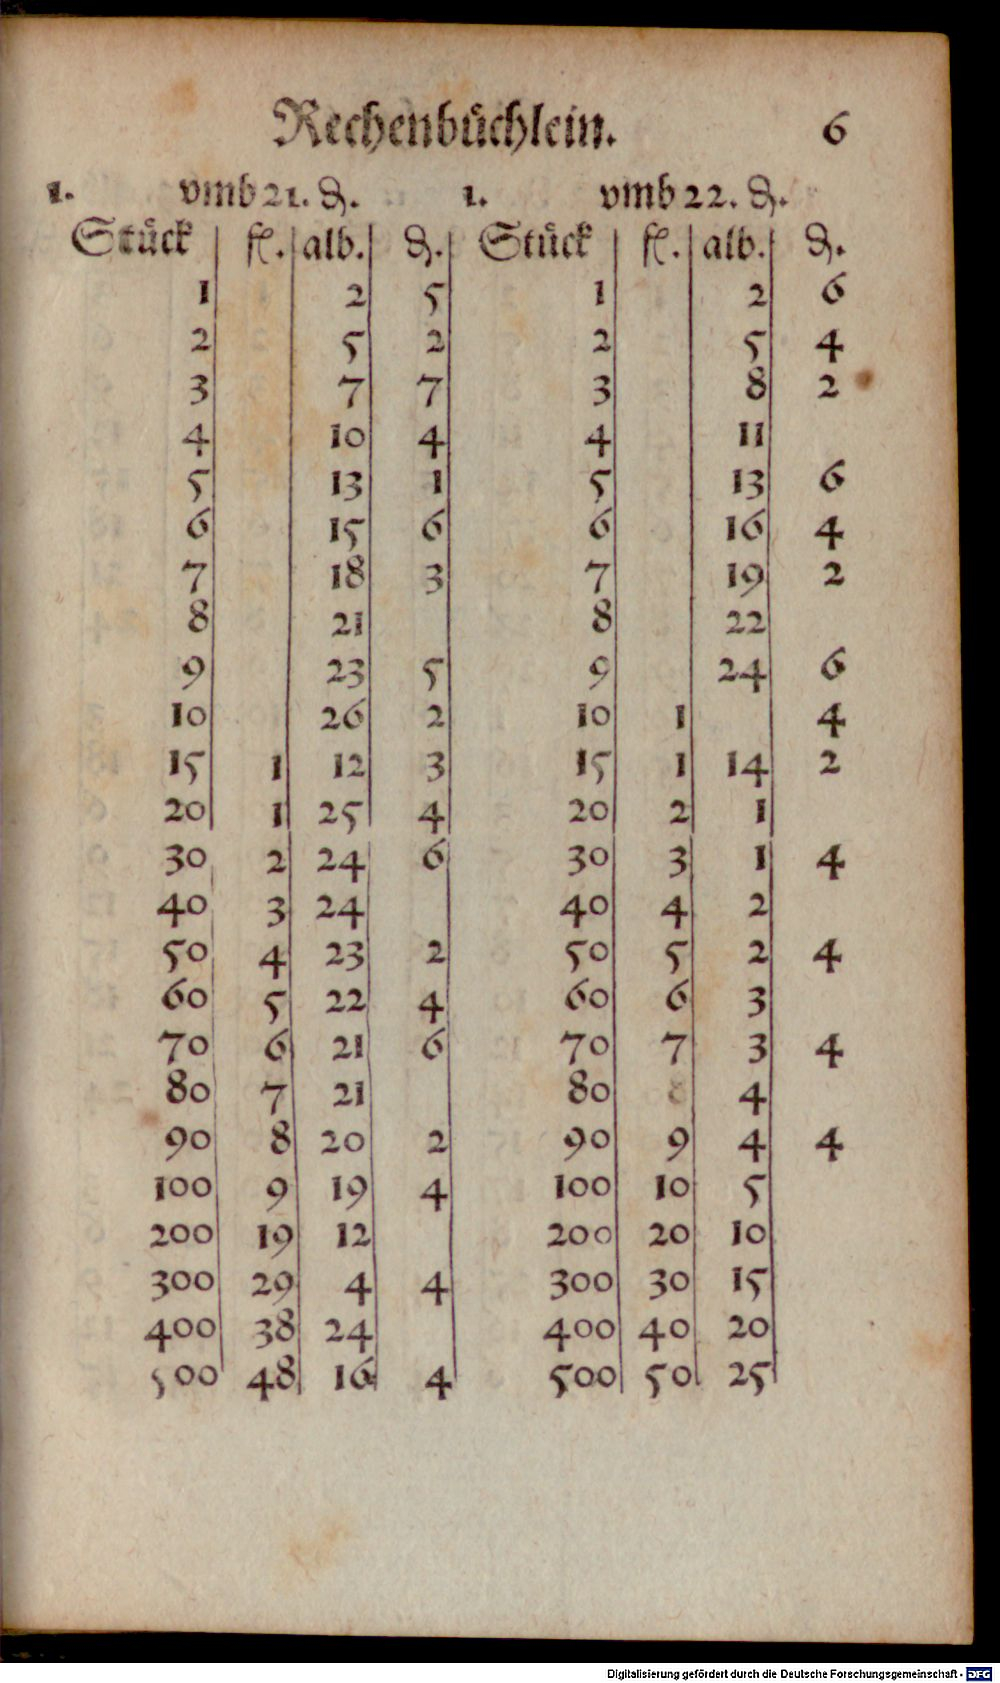 Rechenbüchlein. 6
1. vmb 21. ₰. 1. vmb 22. ₰.
Stück fl. alb. ₰. Stück fl. alb. ₰.
1 2 5 1 2 6
2 5 2 2 5 4
3 7 7 3 8 2
4 10 4 4 11
5 13 1 5 13 6
6 15 6 6 16 4
7 18 3 7 19 2
8 21 8 22
9 23 5 9 24 6
10 26 2 10 1 4
15 1 12 3 15 1 14 2
20 1 25 4 20 2 1
30 2 24 6 30 3 1 4
40 3 24 40 4 2
50 4 23 2 50 5 2 4
60 5 22 4 60 6 3
70 6 21 6 70 7 3 4
80 7 21 80 8 4
90 8 20 2 90 9 4 4
100 9 19 4 100 10 5
200 19 12 200 20 10
300 29 4 4 300 30 15
400 38 24 400 40 20
500 48 16 4 500 50 25
Digitalisierung gefördert durch die Deutsche Forschungsgemeinschaft - DFG